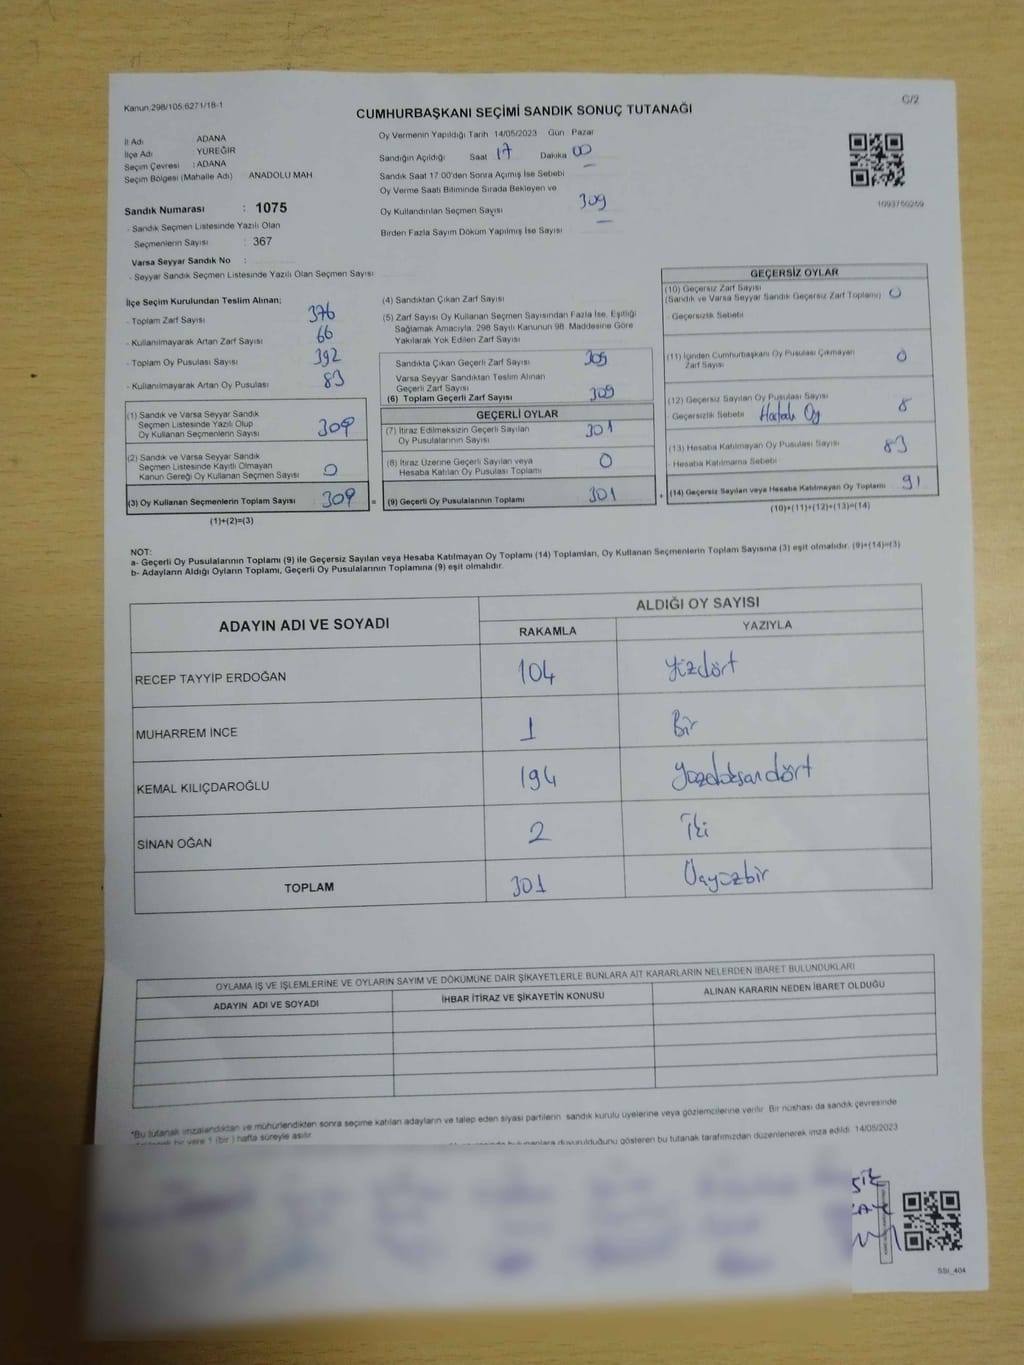 Kanun 298/105 6271/18-1
C/2
CUMHURBAŞKANI SEÇİMİ SANDIK SONUÇ TUTANAĞI
İl Adı : ADANA
İlçe Adı : YÜREĞİR
Seçim Çevresi : ADANA
Seçim Bölgesi (Mahalle Adı) ANADOLU MAH
Sandık Numarası : 1075
- Sandık Seçmen Listesinde Yazılı Olan
Seçmenlerin Sayısı : 367
Varsa Seyyar Sandık No :
- Seyyar Sandık Seçmen Listesinde Yazılı Olan Seçmen Sayısı
Oy Vermenin Yapıldığı Tarih 14/05/2023 Gün Pazar
Sandığın Açıldığı Saat 17 Dakika 00
Sandık Saat 17 00'den Sonra Açmış İse Sebebi
Oy Verme Saati Bitiminde Sırada Bekleyen ve
Oy Kullandırılan Seçmen Sayısı 309
Birden Fazla Sayım Döküm Yapılmış İse Sayısı
1093750259
İlçe Seçim Kurulundan Teslim Alınan;
- Toplam Zarf Sayısı 376
- Kullanılmayarak Artan Zarf Sayısı 66
- Toplam Oy Pusulası Sayısı 392
- Kullanılmayarak Artan Oy Pusulası 83
(1) Sandık ve Varsa Seyyar Sandık
Seçmen Listesinde Yazılı Olup
Oy Kullanan Seçmenlerin Sayısı 309
(2) Sandık ve Varsa Seyyar Sandık
Seçmen Listesinde Kayıtlı Olmayan
Kanun Gereği Oy Kullanan Seçmen Sayısı 0
(3) Oy Kullanan Seçmenlerin Toplam Sayısı 309 =
(1)+(2)=(3)
(4) Sandıktan Çıkan Zarf Sayısı
(5) Zarf Sayısı Oy Kullanan Seçmen Sayısından Fazla İse, Eşitliği
Sağlamak Amacıyla; 298 Sayılı Kanunun 98. Maddesine Göre
Yakılarak Yok Edilen Zarf Sayısı
Sandıkta Çıkan Geçerli Zarf Sayısı 309
Varsa Seyyar Sandıktan Teslim Alınan
Geçerli Zarf Sayısı
(6) Toplam Geçerli Zarf Sayısı 309
GEÇERLİ OYLAR
(7) İtiraz Edilmeksizin Geçerli Sayılan
Oy Pusulalarının Sayısı 301
(8) İtiraz Üzerine Geçerli Sayılan veya
Hesaba Katılan Oy Pusulası Toplamı 0
(9) Geçerli Oy Pusulalarının Toplamı 301 +
GEÇERSİZ OYLAR
(10) Geçersiz Zarf Sayısı
(Sandık ve Varsa Seyyar Sandık Geçersiz Zarf Toplamı) 0
- Geçersizlik Sebebi
(11) İçinden Cumhurbaşkanı Oy Pusulası Çıkmayan
Zarf Sayısı 0
(12) Geçersiz Sayılan Oy Pusulası Sayısı 8
- Geçersizlik Sebebi Hatalı Oy
(13) Hesaba Katılmayan Oy Pusulası Sayısı 83
- Hesaba Katılmama Sebebi
(14) Geçersiz Sayılan veya Hesaba Katılmayan Oy Toplamı 91
(10)+(11)+(12)+(13)=(14)
NOT:
a- Geçerli Oy Pusulalarının Toplamı (9) ile Geçersiz Sayılan veya Hesaba Katılmayan Oy Toplamı (14) Toplamları, Oy Kullanan Seçmenlerin Toplam Sayısına (3) eşit olmalıdır. (9)+(14)=(3)
b- Adayların Aldığı Oyların Toplamı, Geçerli Oy Pusulalarının Toplamına (9) eşit olmalıdır.
ADAYIN ADI VE SOYADI ALDIĞI OY SAYISI
RAKAMLA YAZIYLA
RECEP TAYYİP ERDOĞAN 104 Yüzdört
MUHARREM İNCE 1 Bir
KEMAL KILIÇDAROĞLU 194 yüzdoksandört
SİNAN OĞAN 2 İki
TOPLAM 301 Üçyüzbir
OYLAMA İŞ VE İŞLEMLERİNE VE OYLARIN SAYIM VE DÖKÜMÜNE DAİR ŞİKAYETLERLE BUNLARA AİT KARARLARIN NELERDEN İBARET BULUNDUKLARI
ADAYIN ADI VE SOYADI İHBAR İTİRAZ VE ŞİKAYETİN KONUSU ALINAN KARARIN NEDEN İBARET OLDUĞU
*Bu tutanak imzalandıktan ve mühürlendikten sonra seçime katılan adayların ve talep eden siyasi partilerin sandık kurulu üyelerine veya gözlemcilerine verilir. Bir nüshası da sandık çevresinde
bir yere 1 (bir) hafta süreyle asılır.
duyurulduğunu gösteren bu tutanak tarafımızdan düzenlenerek imza edildi. 14/05/2023
SSİ_404